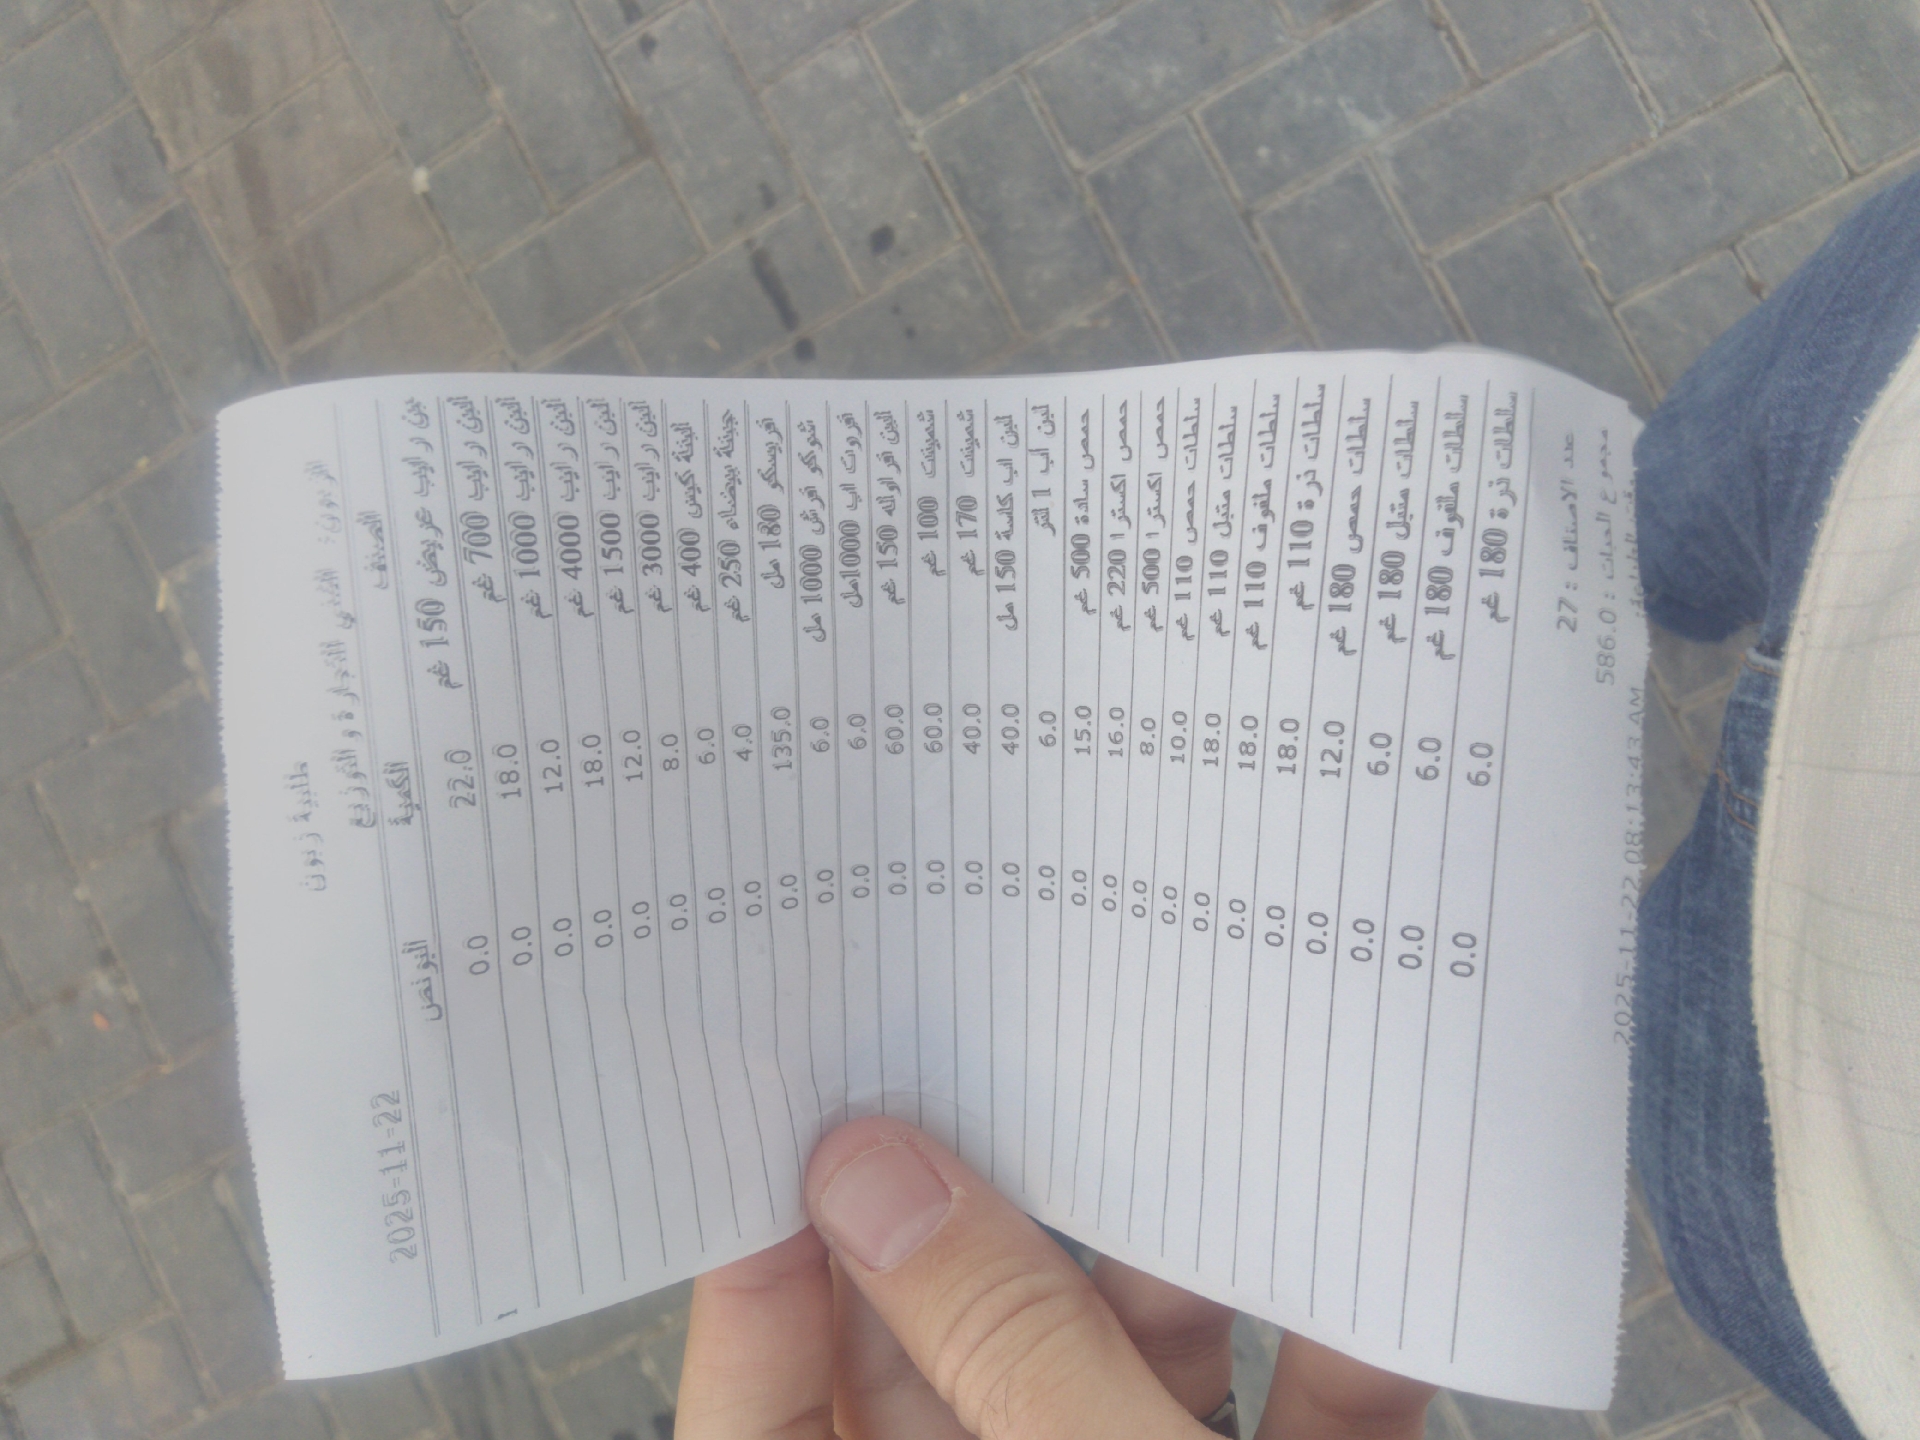 طلبية زبون
الزبون: الغني للتجارة والتوزيع
2025-11-22
الصنف الكمية البونص
لبن رايب عريض 150 غم 22.0 0.0
البن رايب 700 غم 18.0 0.0
البن رايب 1000 غم 12.0 0.0
البن رايب 4000 غم 18.0 0.0
البن رايب 1500 غم 12.0 0.0
البن رايب 3000 غم 8.0 0.0
البنة كيس 400 غم 6.0 0.0
جبنة بيضاء 250 غم 4.0 0.0
افريسكو 180 مل 135.0 0.0
شوكو افرش 1000 مل 6.0 0.0
افروت اب 1000مل 6.0 0.0
البن افراوله 150 غم 60.0 0.0
شمينت 100 غم 60.0 0.0
شمينت 170 غم 40.0 0.0
لبن اب كاسة 150 مل 40.0 0.0
لبن اب 1 لتر 6.0 0.0
حمص سادة 500 غم 15.0 0.0
حمص اكسترا 220 غم 16.0 0.0
حمص اكسترا 500 غم 8.0 0.0
سلطات حمص 110 غم 10.0 0.0
سلطات متبل 110 غم 18.0 0.0
سلطات ملفوف 110 غم 18.0 0.0
سلطات ذرة 110 غم 18.0 0.0
سلطات حمص 180 غم 12.0 0.0
سلطات متبل 180 غم 6.0 0.0
سلطات ملفوف 180 غم 6.0 0.0
سلطات ذرة 180 غم 6.0 0.0
عدد الاصناف : 27
مجموع الحبات : 586.0
2025-11-22 08:13:43 AM